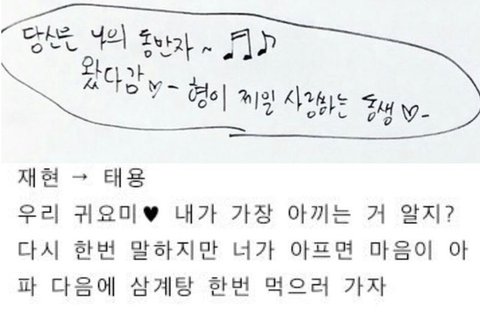 당신은 나의 동반자 ~ ♬♪
왔다감♡-
형이 제일 사랑하는 동생♡-
재현 → 태용
우리 귀요미♥ 내가 가장 아끼는 거 알지?
다시 한번 말하지만 너가 아프면 마음이 아
파 다음에 삼계탕 한번 먹으러 가자